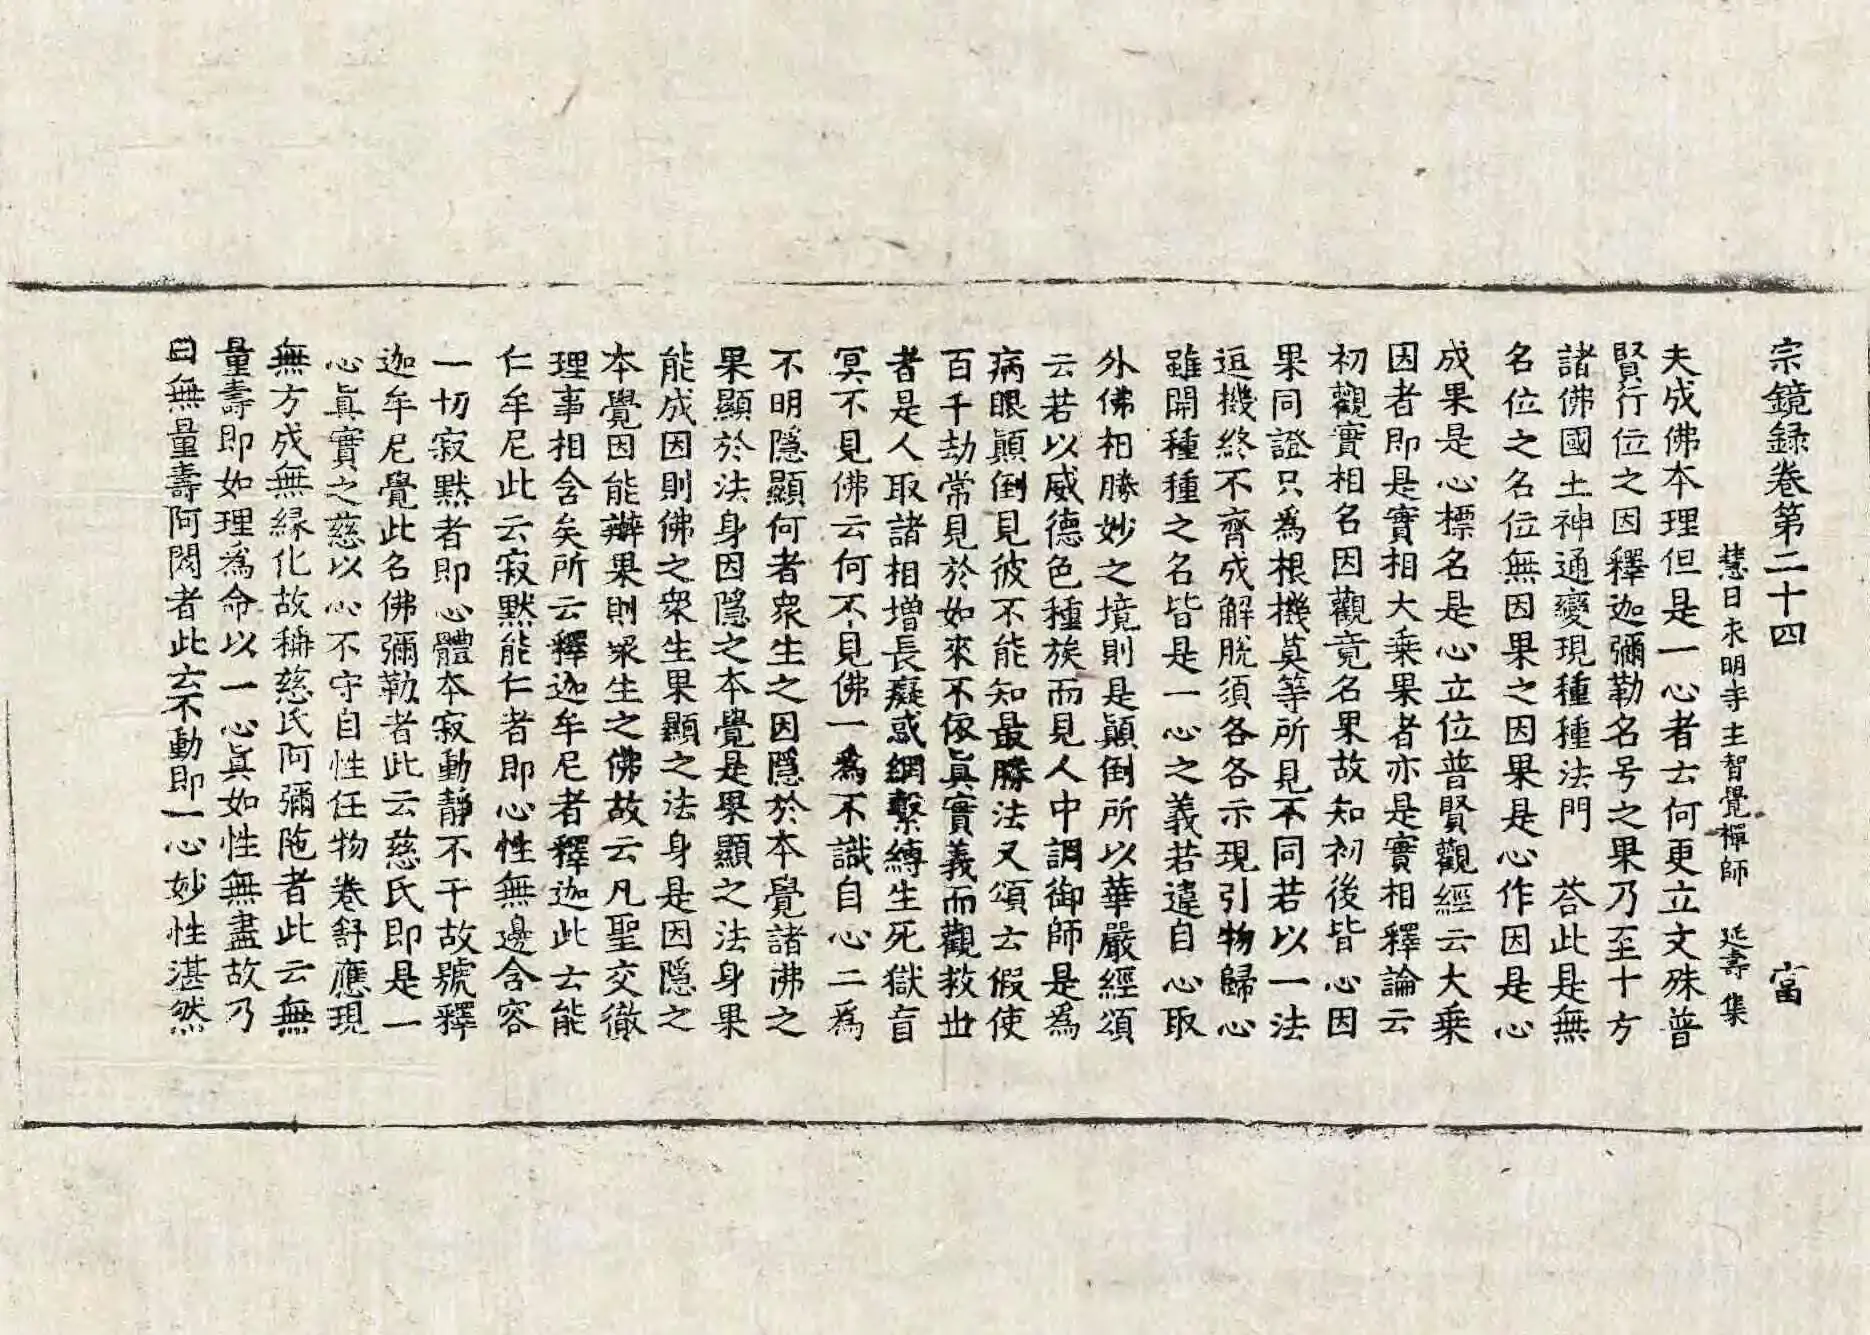 宗鏡録卷第二十四 富
慧日永明寺主智覺禪師 延壽 集
夫成佛本理但是一心者云何更立文殊普
賢行位之因釋迦彌勒名号之果乃至十方
諸佛國土神通變現種種法門 荅此是無
名位之名位無因果之因果是心作因是心
成果是心標名是心立位普賢觀經云大乗
因者即是實相大乗果者亦是實相釋論云
初觀實相名因觀竟名果故知初後皆心因
果同證只為根機莫等所見不同若以一法
逗機終不齊成解脫須各各示現引物歸心
雖開種種之名皆是一心之義若違自心取
外佛相勝妙之境則是顛倒所以華嚴經頌
云若以威德色種族而見人中調御師是為
病眼顛倒見彼不能知最勝法又頌云假使
百千劫常見於如來不依真實義而觀救世
者是人取諸相增長癡惑網繫縛生死獄盲
冥不見佛云何不見佛一為不識自心二為
不明隱顯何者衆生之因隱於本覺諸佛之
果顯於法身因隱之本覺是果顯之法身果
能成因則佛之衆生果顯之法身是因隱之
本覺因能辦果則衆生之佛故云凡聖交徹
理事相含矣所云釋迦牟尼者釋迦此云能
仁牟尼此云寂默能仁者即心性無邊含容
一切寂黙者即心體本寂動靜不干故號釋
迦牟尼覺此名佛彌勒者此云慈氏即是一
心真實之慈以心不守自性任物卷舒應現
無方成無緣化故稱慈氏阿彌陁者此云無
量壽即如理為命以一心真如性無盡故乃
曰無量壽阿閦者此云不動即一心妙性湛然